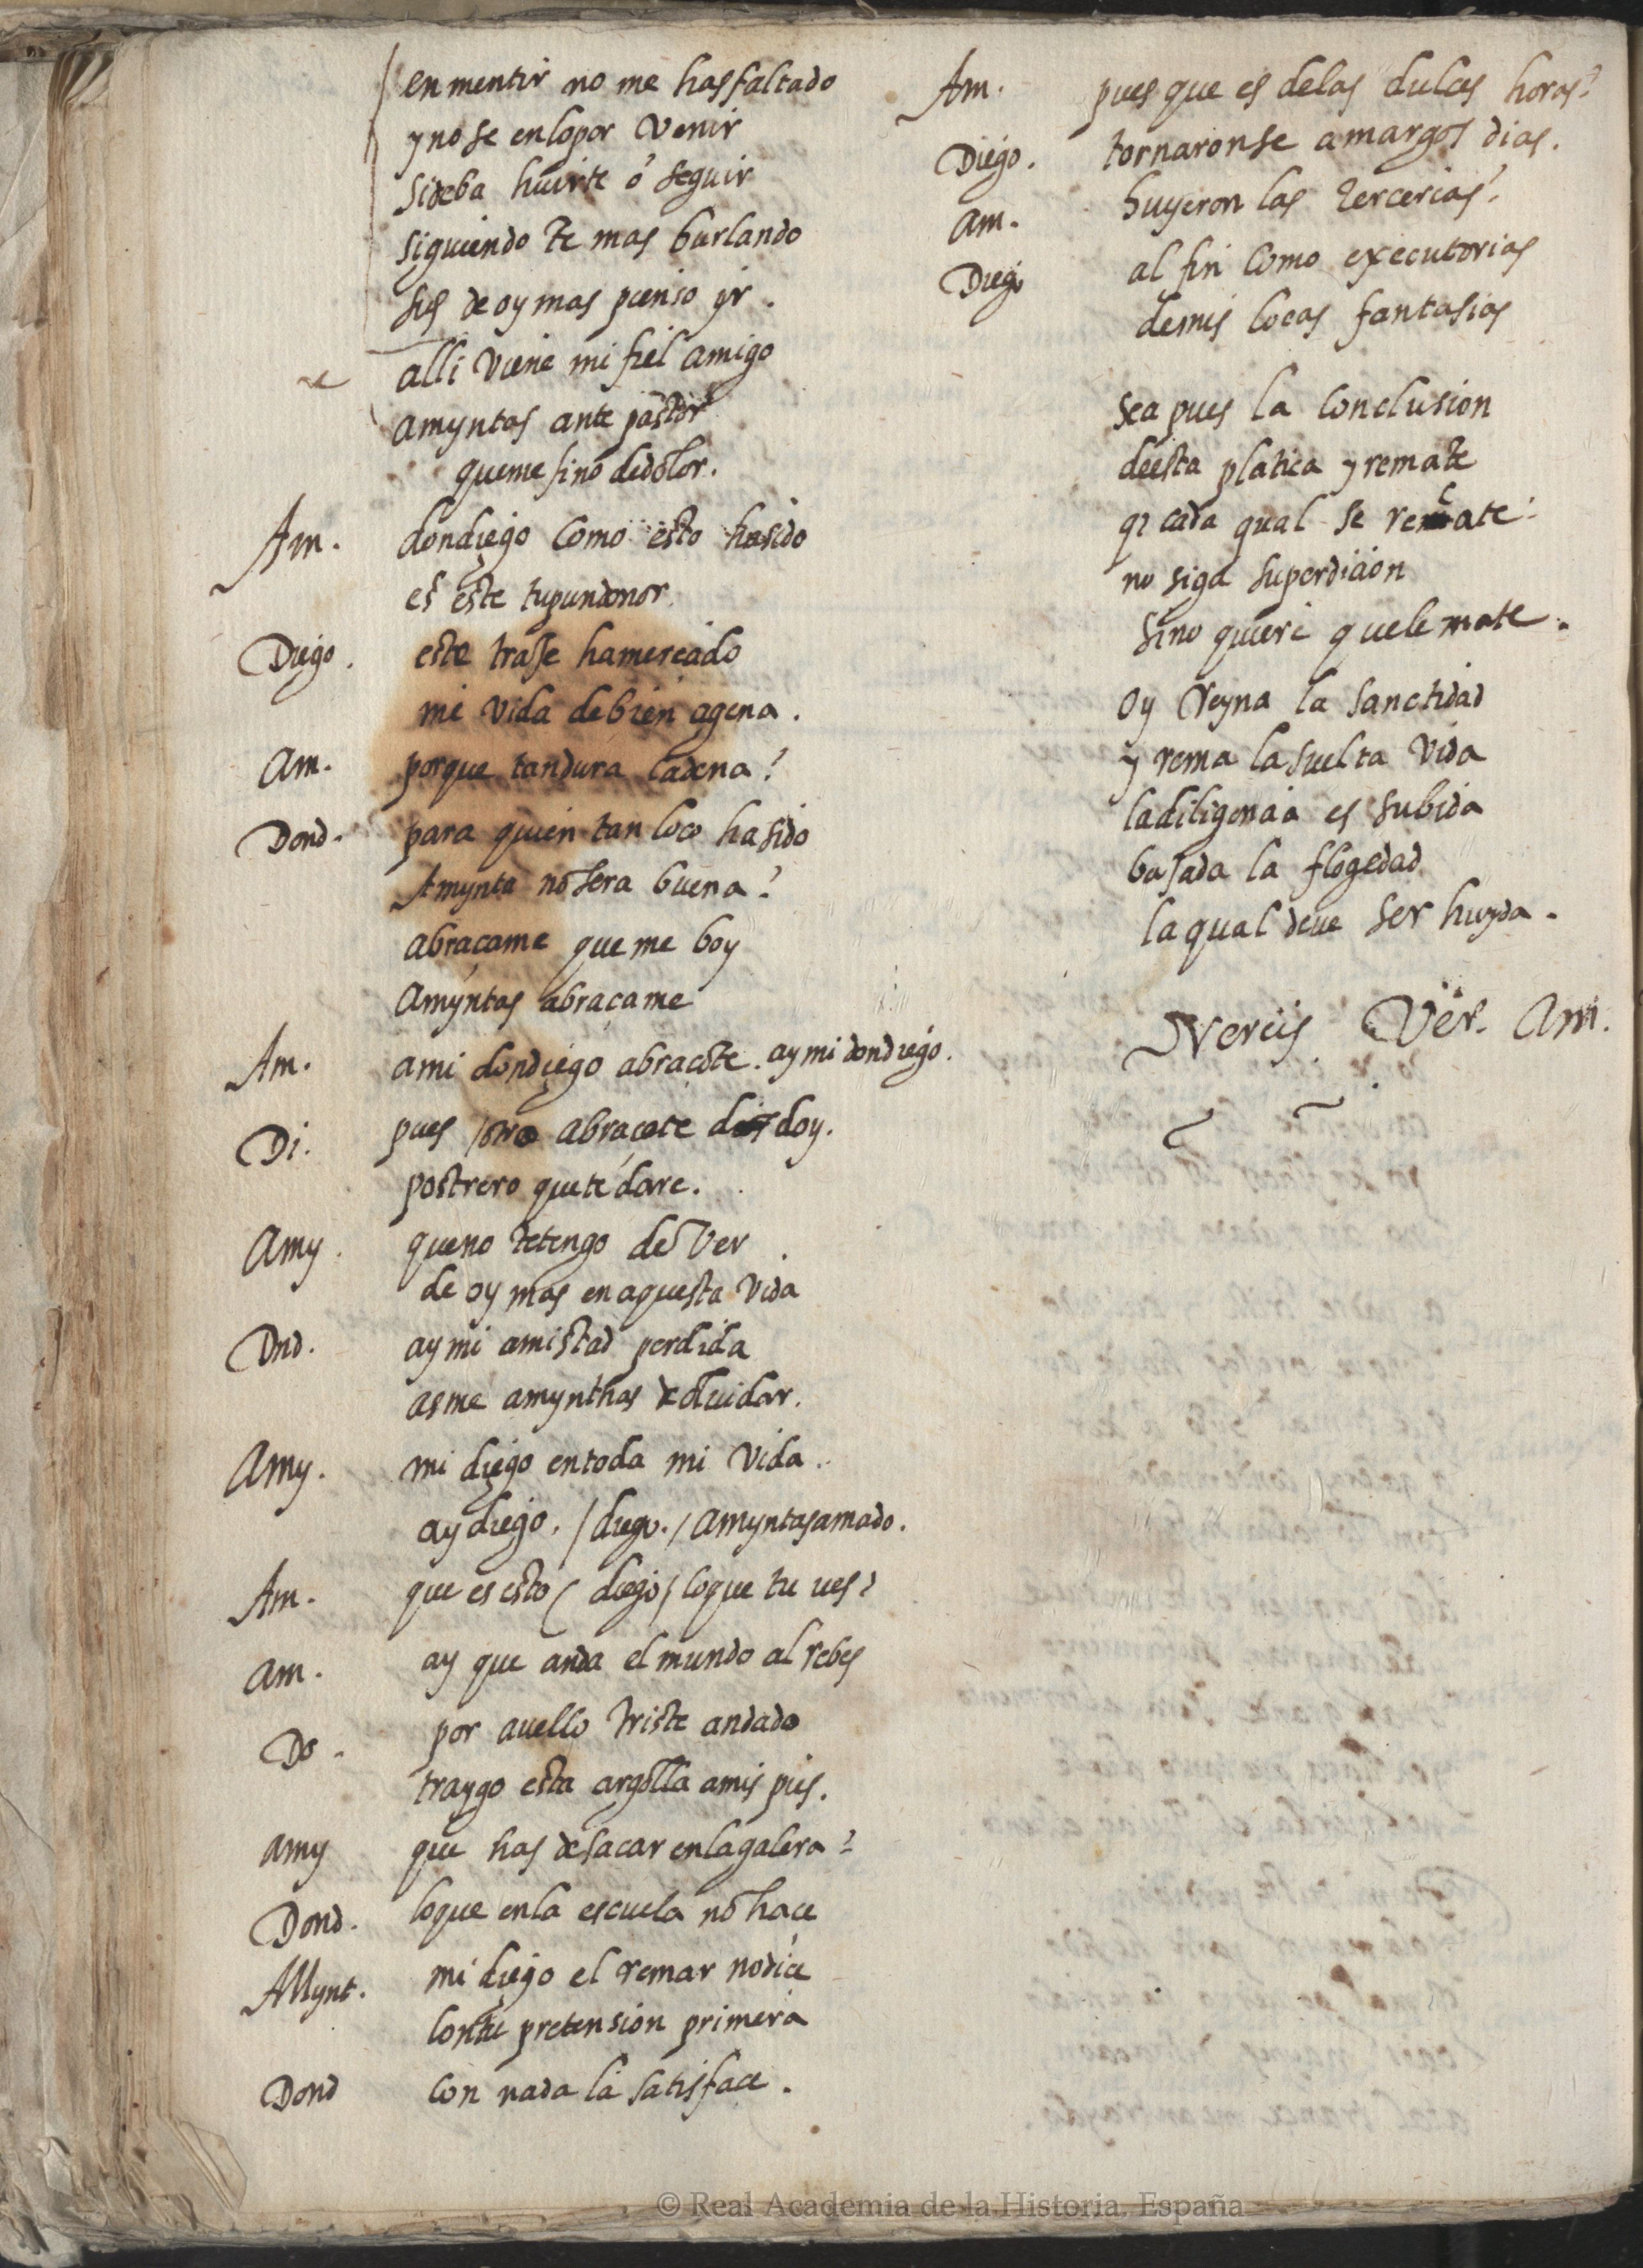 en mentir no me has faltado
y no se enlopor venir
si deba huirte o seguir
siguiendo te mas burlando
de oy mas pienso yr.
alli viene mi fiel amigo
amyntas ante pastor
queme fino dedolor.
Am. dondiego como esto hasido
es este tupundonor
Diego. este traJe hamereçido
mi vida debien agena.
Am. porque tandura cadena?
Dond. para quien tan loco hasido
Amynta no sera buena?
abraçame que me boy
Amyntas abraçame
Am. a mi dondiego abraçote. ay mi dondiego.
Di. pues otro abraçote doy.
postrero quete dare.
Amy. queno tetengo de ver
de oy mas en aquesta vida
Dnd. ay mi amistad perdida
asme amynthas de oluidar.
Amy. mi diego entoda mi vida.
ay diego. / diego. / amyntas amado.
Am. que es esto / diego / loque tu ues?
am. ay que anda el mundo al rebes
Do. por auello triste andado
traygo esta argolla amis pies.
amy que has de sacar enlagalera?
Dond. loque enla escuela no hace
AMynt. mi diego el remar nodiçe
contu pretension primera
Dond con nada la satisface.
Am. pues que es delas dulces horas?
Diego. tornaronse amargos dias.
am. huyeron las tercerias?
Diego al fin como executorias
demis locas fantasias
sea pues la conclusion
deesta platica y remate
q cada qual se recate
no siga superdicion
sino quiere quele mate.
oy Reyna la sanctidad
y rema la suelta vida
ladiligencia es subida
baJada la flogedad
laqual deue ser huyda.
Nereus. Ver. Am.
© Real Academia de la Historia. España